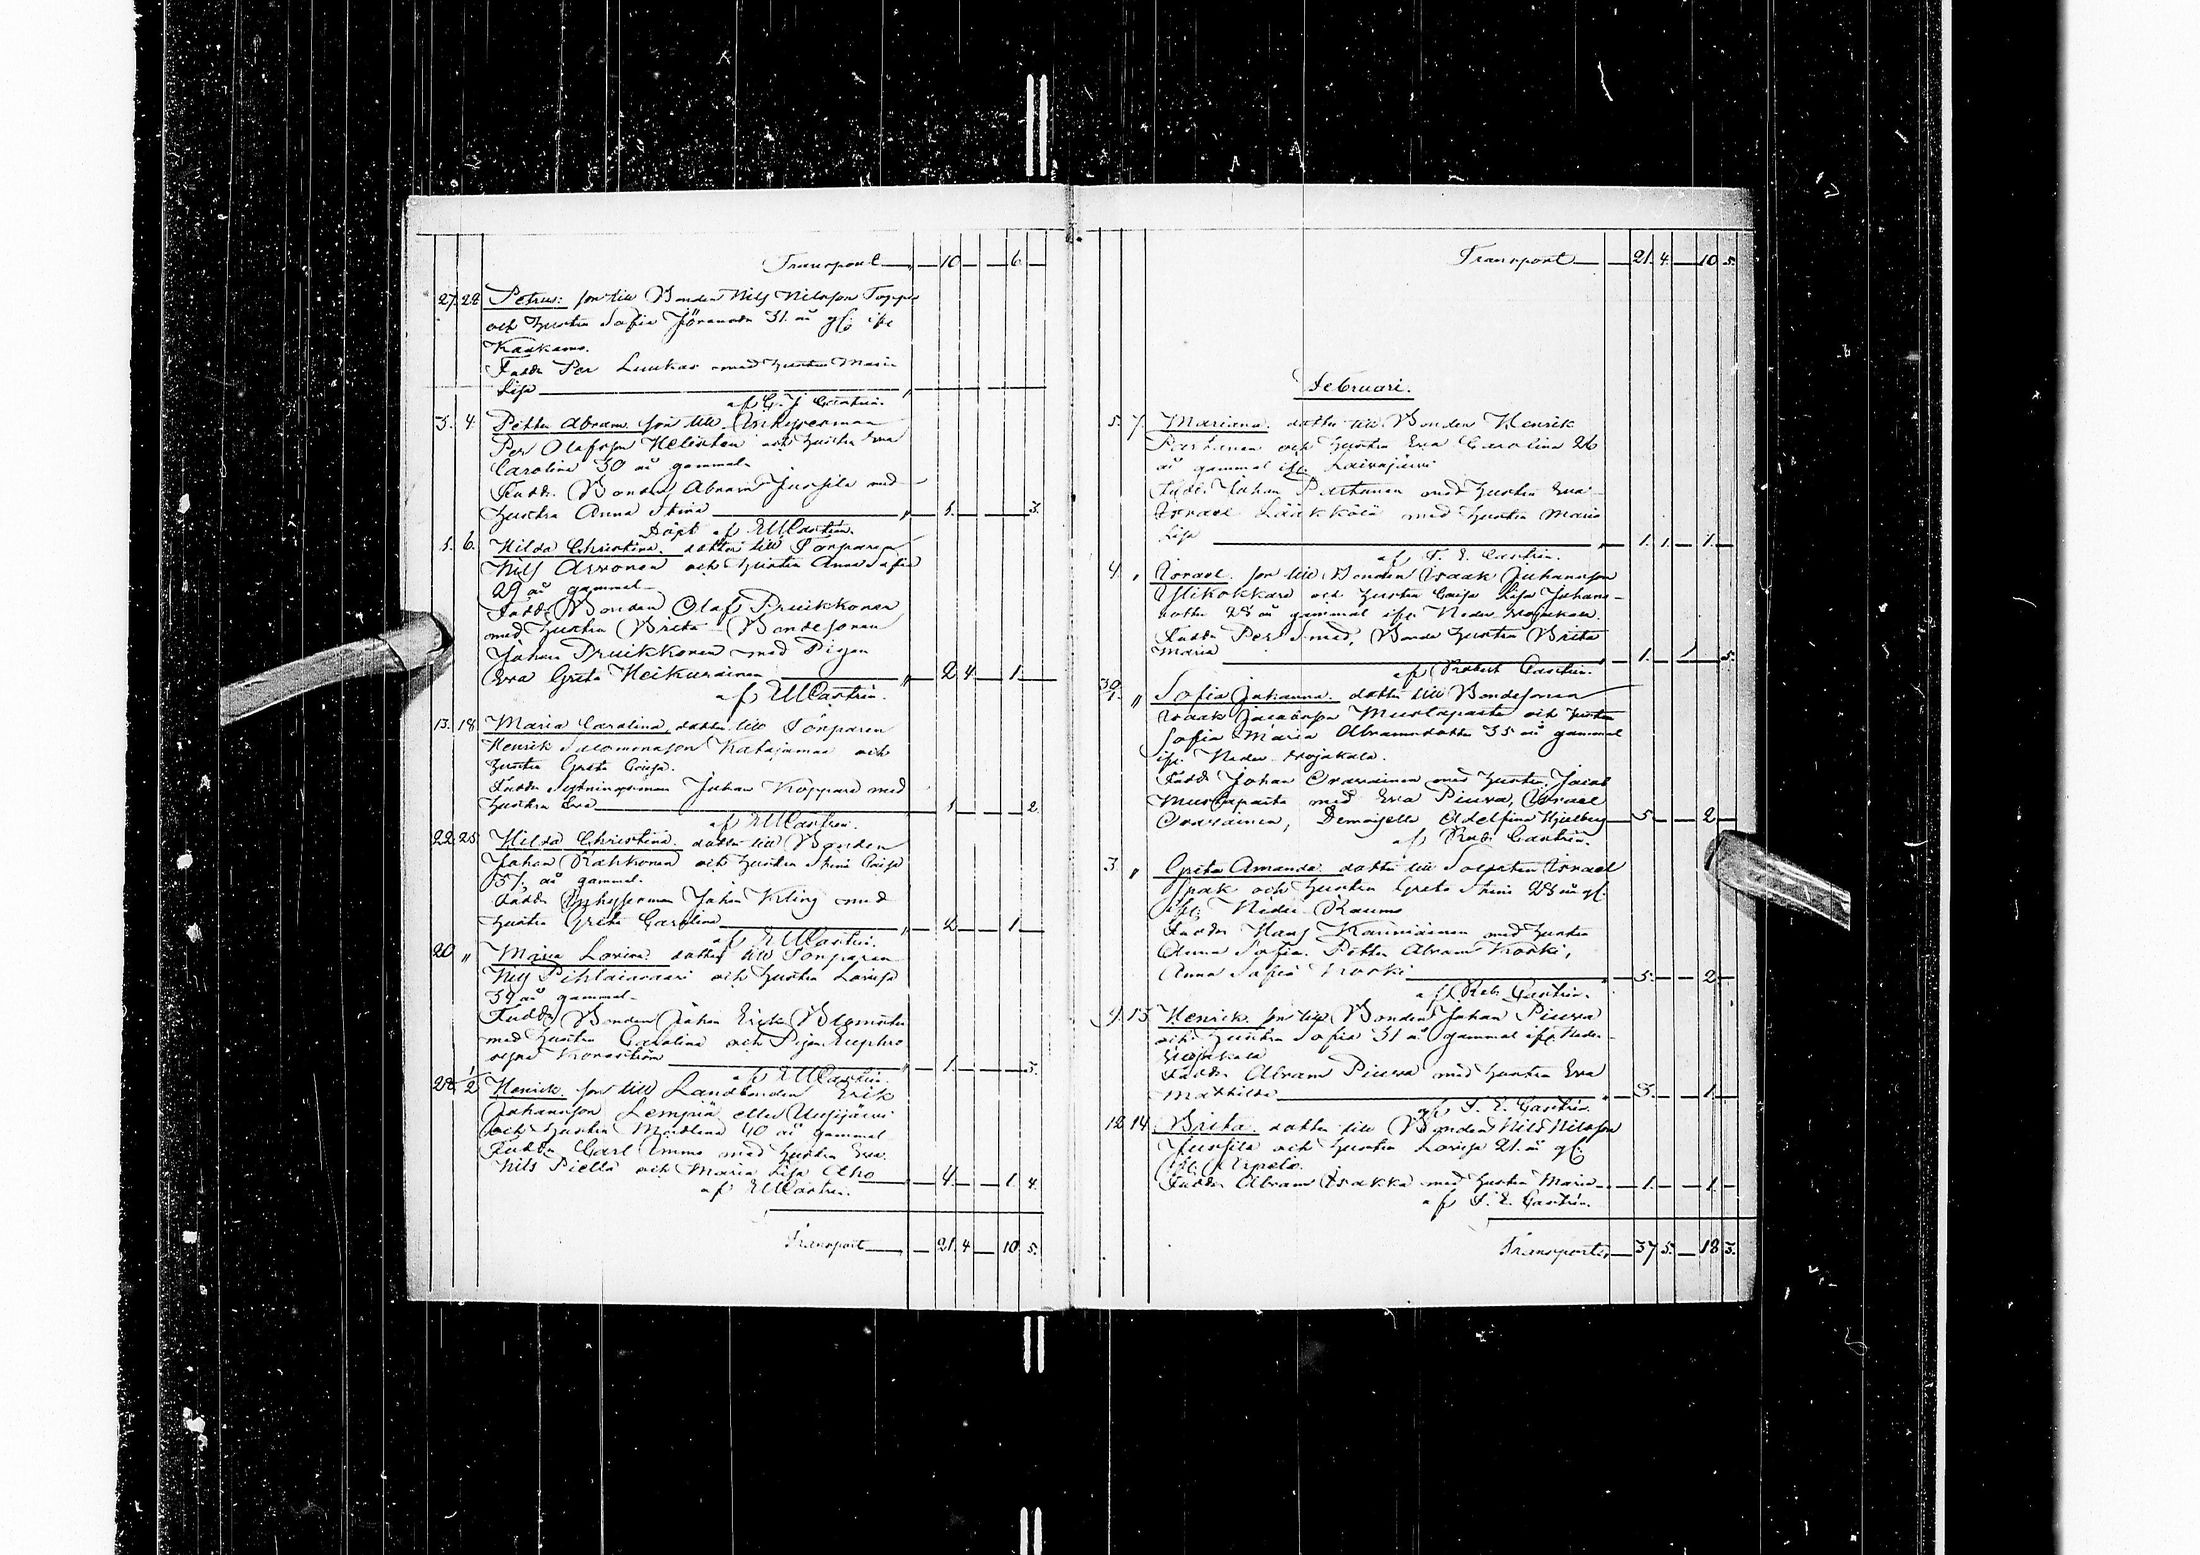 Transport 10 6
27. 28. Petrus: son till Bonden Nils Nilsson
och hustru Sofia 31. år gl: i fr.
Kaakamo.
Fadd. Per Luukas med hustru Maria
Lisa
af G. J. Castrén.
3. 4. Petter Abram. son till Inhyseman
Per Olafsson Helisten och hustru Eva
Carolina 30 år gammal
Fadd. Bonden Abram Juusila med
hustru Anna Stina 1. 3.
Döpt af E M Castrén.
1. 6. Hilda Christina. dotter till Torparen
Nils Asunen och hustru Anna Sofia
29 år gammal
Fadd. Bonden Olof Pruikkonen
med hustru Brita Bondesonen
Johan Pruikkonen med Pigan
Eva Greta Heikurainen 2 4. 1.
af E M Castrén.
13. 18 Maria Carolina, dotter till Torparen
Henrik Salomonsson Katajamaa och
hustru Greta Caisa.
Fadder Johan Koppare med
hustru Eva 1 2
af E M Castrén.
22. 25. Hilda Christina. dotter till Bonden
Johan Rahkonen och hustru Stina Caisa
37, år gammal.
Fadd. Inhyseman Johan Kling med
hustru Greta Carolina 2. 1.
af E M Castrén.
20 „ Maria Lovisa. dotter till Torparen
Nils Pihlajavaari och hustru Lovisa
39 år gammal
Fadd. Bonden Johan Erik Blomster
med hustru Carolina och Pigan Euphro
signe Kronström 1. 3.
af E M Castrén.
28. 1/2 Henrik. son till Landbonden Erik
Johansson Lempiä eller Uusijärvi
och hustru Madlena 40 år gammal
Fadd. Carl Immo med hustru Eva
Nils Piella och Maria Lisa Alho 4. 1. 4.
af E M Castrén.
Transport 21. 4 10. 5.
Transport 21. 4. 10 5.
Februari.
5. 7. Mariana. dotter till Bonden Henrik
Partanen och hustru Eva Carolina 26
år gammal ifr. Laivajärvi
Fadd. Johan Partanen med hustru Eva
Israel Lääkkölä med hustru Maria
Lisa 1. 1. 1.
af F. E. Castrén.
4. „ Israel. son till Bonden Isaak Johansson
Ylikokkare och hustru Caisa Lisa Johans-
dotter 28 år gammal ifr. Neder Wojakala.
Fadd. Per Smed, Bonde hustru Brita
Maria 1. 1 5.
af Robert Castrén.
30/1. „ Sofia Johanna. dotter till Bondesonen
Isaak Jacobsson Mustaparta och hustru
Sofia Maria Abramsdotter 35 år gammal
ifr. Neder Wojakala.
Fadd. Johan Oravainen med hustru, Jacob
Mustaparta med Eva Piuva, Israel
Oravainen, Demoiselle Adelfina Hjelberg 5 2
af Rob. Castrén.
3. „ Greta Amanda. dotter till Soldaten Israel
Spak och hustru Greta Stina 28 år gl.
ifr. Neder Raumo
Fadd. Hans Kanniainen med hustru
Anna Sofia. Petter Abram Koski,
Anna Sofia Koski 5. 2
af Rob. Castrén.
9. 13 Henrik. son till Bonden Johan Piuva
och hustru Sofia 31 år gammal ifr. Neder-
Wojakala
Fadder Abram Piuva med hustru Eva
Mathilda 3. 1.
af F. E. Castrén.
12. 14. Brita. dotter till Bonden Nils Nilsson
Juusila och hustru Lovisa 21. år gl:
ifr. Arpela.
Fadder Abram Isakka med hustru Maria 1. 1.
af F. E. Castrén.
Transport 37 5. 18 3.